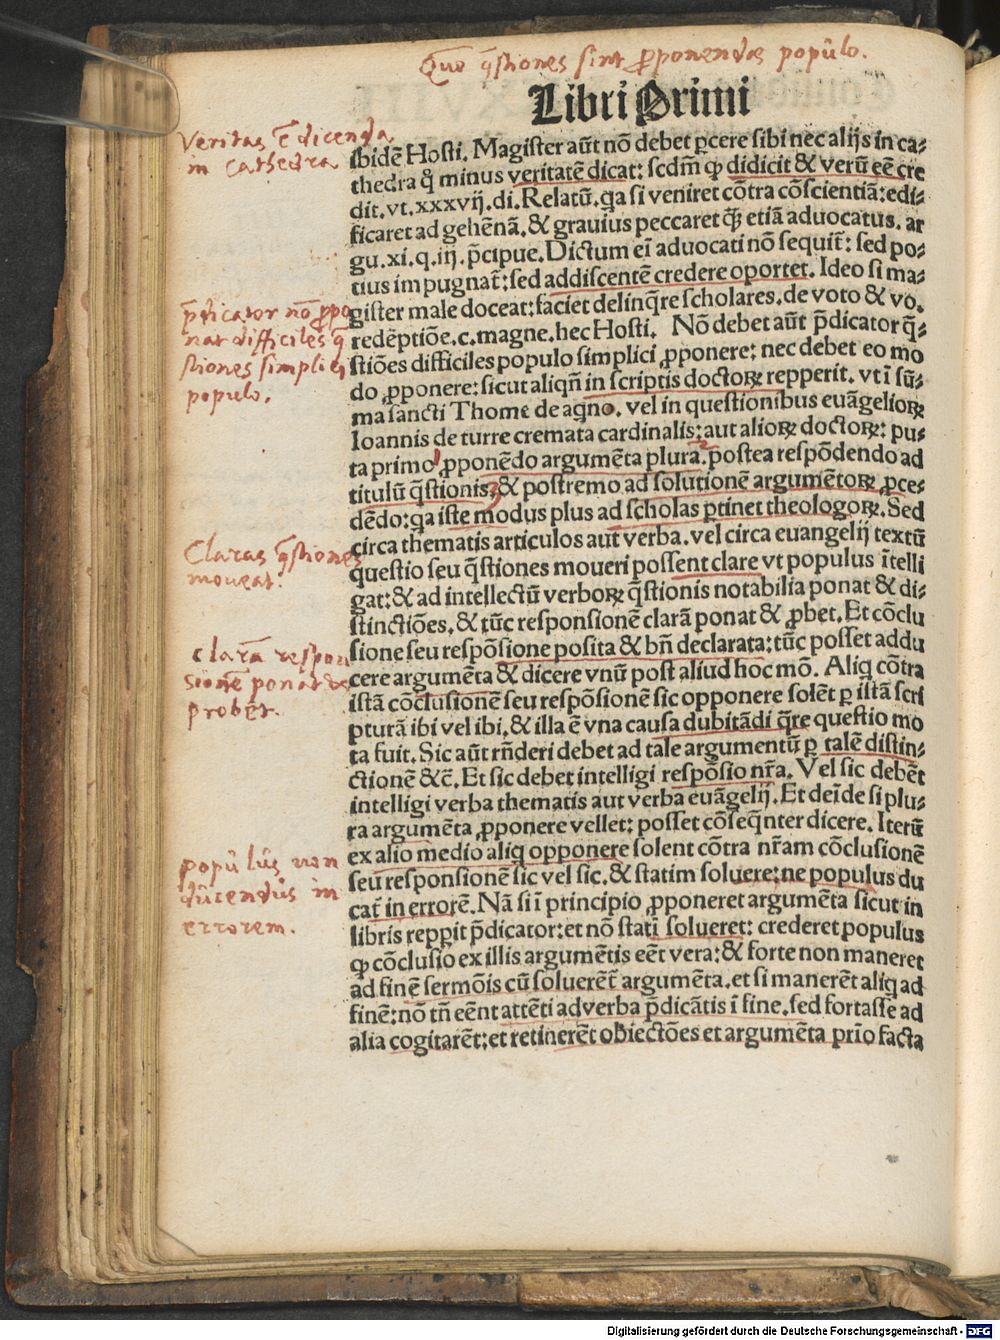 Quo q̃stiones sint ꝓponendae populo.
Libri Primi
Veritas ẽ dicenda
in Cathedra
ibidẽ Hosti. Magister aũt nõ debet ꝑcere sibi nec alijs in ca⸗
thedra q̊ minus veritatẽ dicat: scdm̃ ꝙ didicit & verũ eẽ cre
dit. vt. xxxvij. di. Relatũ. qa si veniret cõtra cõscientiã: edi⸗
ficaret ad gehẽnã. & grauius peccaret q̃ꝫ etiã aduocatus. ar
gu. xi. q. iij. p̃cipue. Dictum eĩ aduocati nõ sequit̃: sed po⸗
tius impugnat̃: sed addiscentẽ credere oportet. Ideo si ma⸗
gister male doceat: faciet delinq̃re scholares. de voto & vo.
redẽptiõe. c. magne. hec Hosti. Nõ debet aũt p̃dicator q̃⸗
stiões difficiles populo simplici ꝓponere: nec debet eo mo
do ꝓponere: sicut aliqñ in scriptis doctoꝝ repperit. vt ĩ sũ⸗
ma sancti Thome de aqno. vel in questionibus euãgelioꝝ
Ioannis de turre cremata cardinalis: aut alioꝝ doctoꝝ: pu⸗
ta primo ꝓponẽdo argumẽta plura. postea respõdendo ad
titulũ q̃stionis, & postremo ad solutionẽ argumẽtoꝝ ꝓce⸗
dẽdo: qa iste modus plus ad scholas ꝑtinet theologoꝝ. Sed
circa thematis articulos aut verba. vel circa euangelij textũ
questio seu q̃stiones moueri possent clare vt populus ĩtelli
gat: & ad intellectũ verboꝝ q̃stionis notabilia ponat & di⸗
stinctiões. & tũc responsionẽ clarã ponat & ꝓbet. Et cõclu
sione seu respõsione posita & bñ declarata: tũc posset addu
cere argumẽta & dicere vnũ post aliud hoc mõ. Aliq cõtra
istã cõclusionẽ seu respõsionẽ sic opponere solẽt ꝑ istã scri
pturã ibi vel ibi. & illa ẽ vna causa dubitãdi q̃re questio mo
ta fuit. Sic aũt rñderi debet ad tale argumentũ ꝑ talẽ distin⸗
ctionẽ &c̃. Et sic debet intelligi respõsio nr̃a. Vel sic debẽt
intelligi verba thematis aut verba euãgelij. Et deĩde si plu⸗
ra argumẽta ꝓponere vellet: posset cõseq̃nter dicere. Iterũ
ex alio medio aliq opponere solent cõtra nr̃am cõclusionẽ
seu responsionẽ sic vel sic. & statim soluere: ne populus du
cat̃ in errorẽ. Nã si ĩ principio ꝓponeret argumẽta sicut in
libris repꝑit p̃dicator: et nõ statĩ solueret: crederet populus
ꝙ cõclusio ex illis argumẽtis eẽt vera: & forte non maneret
ad finẽ sermõis cũ soluerẽt̃ argumẽta. et si manerẽt aliq ad
finẽ: nõ tñ eẽnt attẽti ad verba p̃dicãtis ĩ fine. sed fortasse ad
alia cogitarẽt: et retinerẽt obiectões et argumẽta prĩo facta
p̃dicator nõ ꝓpo
nat difficiles q̃
stiones simplici
populo.
Claras q̃stiones
moueat.
clarã respon
sionẽ ponat &
probet.
populus non
ducendus in
errorem.
Digitalisierung gefördert durch die Deutsche Forschungsgemeinschaft - DFG